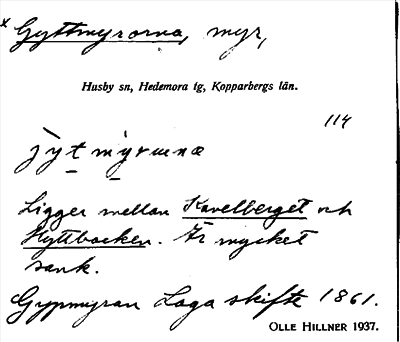 x Gyttmyrorna, myr,
Husby sn, Hedemora tg, Kopparbergs län.
114
Ligger mellan Kavelberget och
Hyttbacken. Är mycket
sank.
Gypmyran Laga skifte 1861.
OLLE HILLNER 1937.